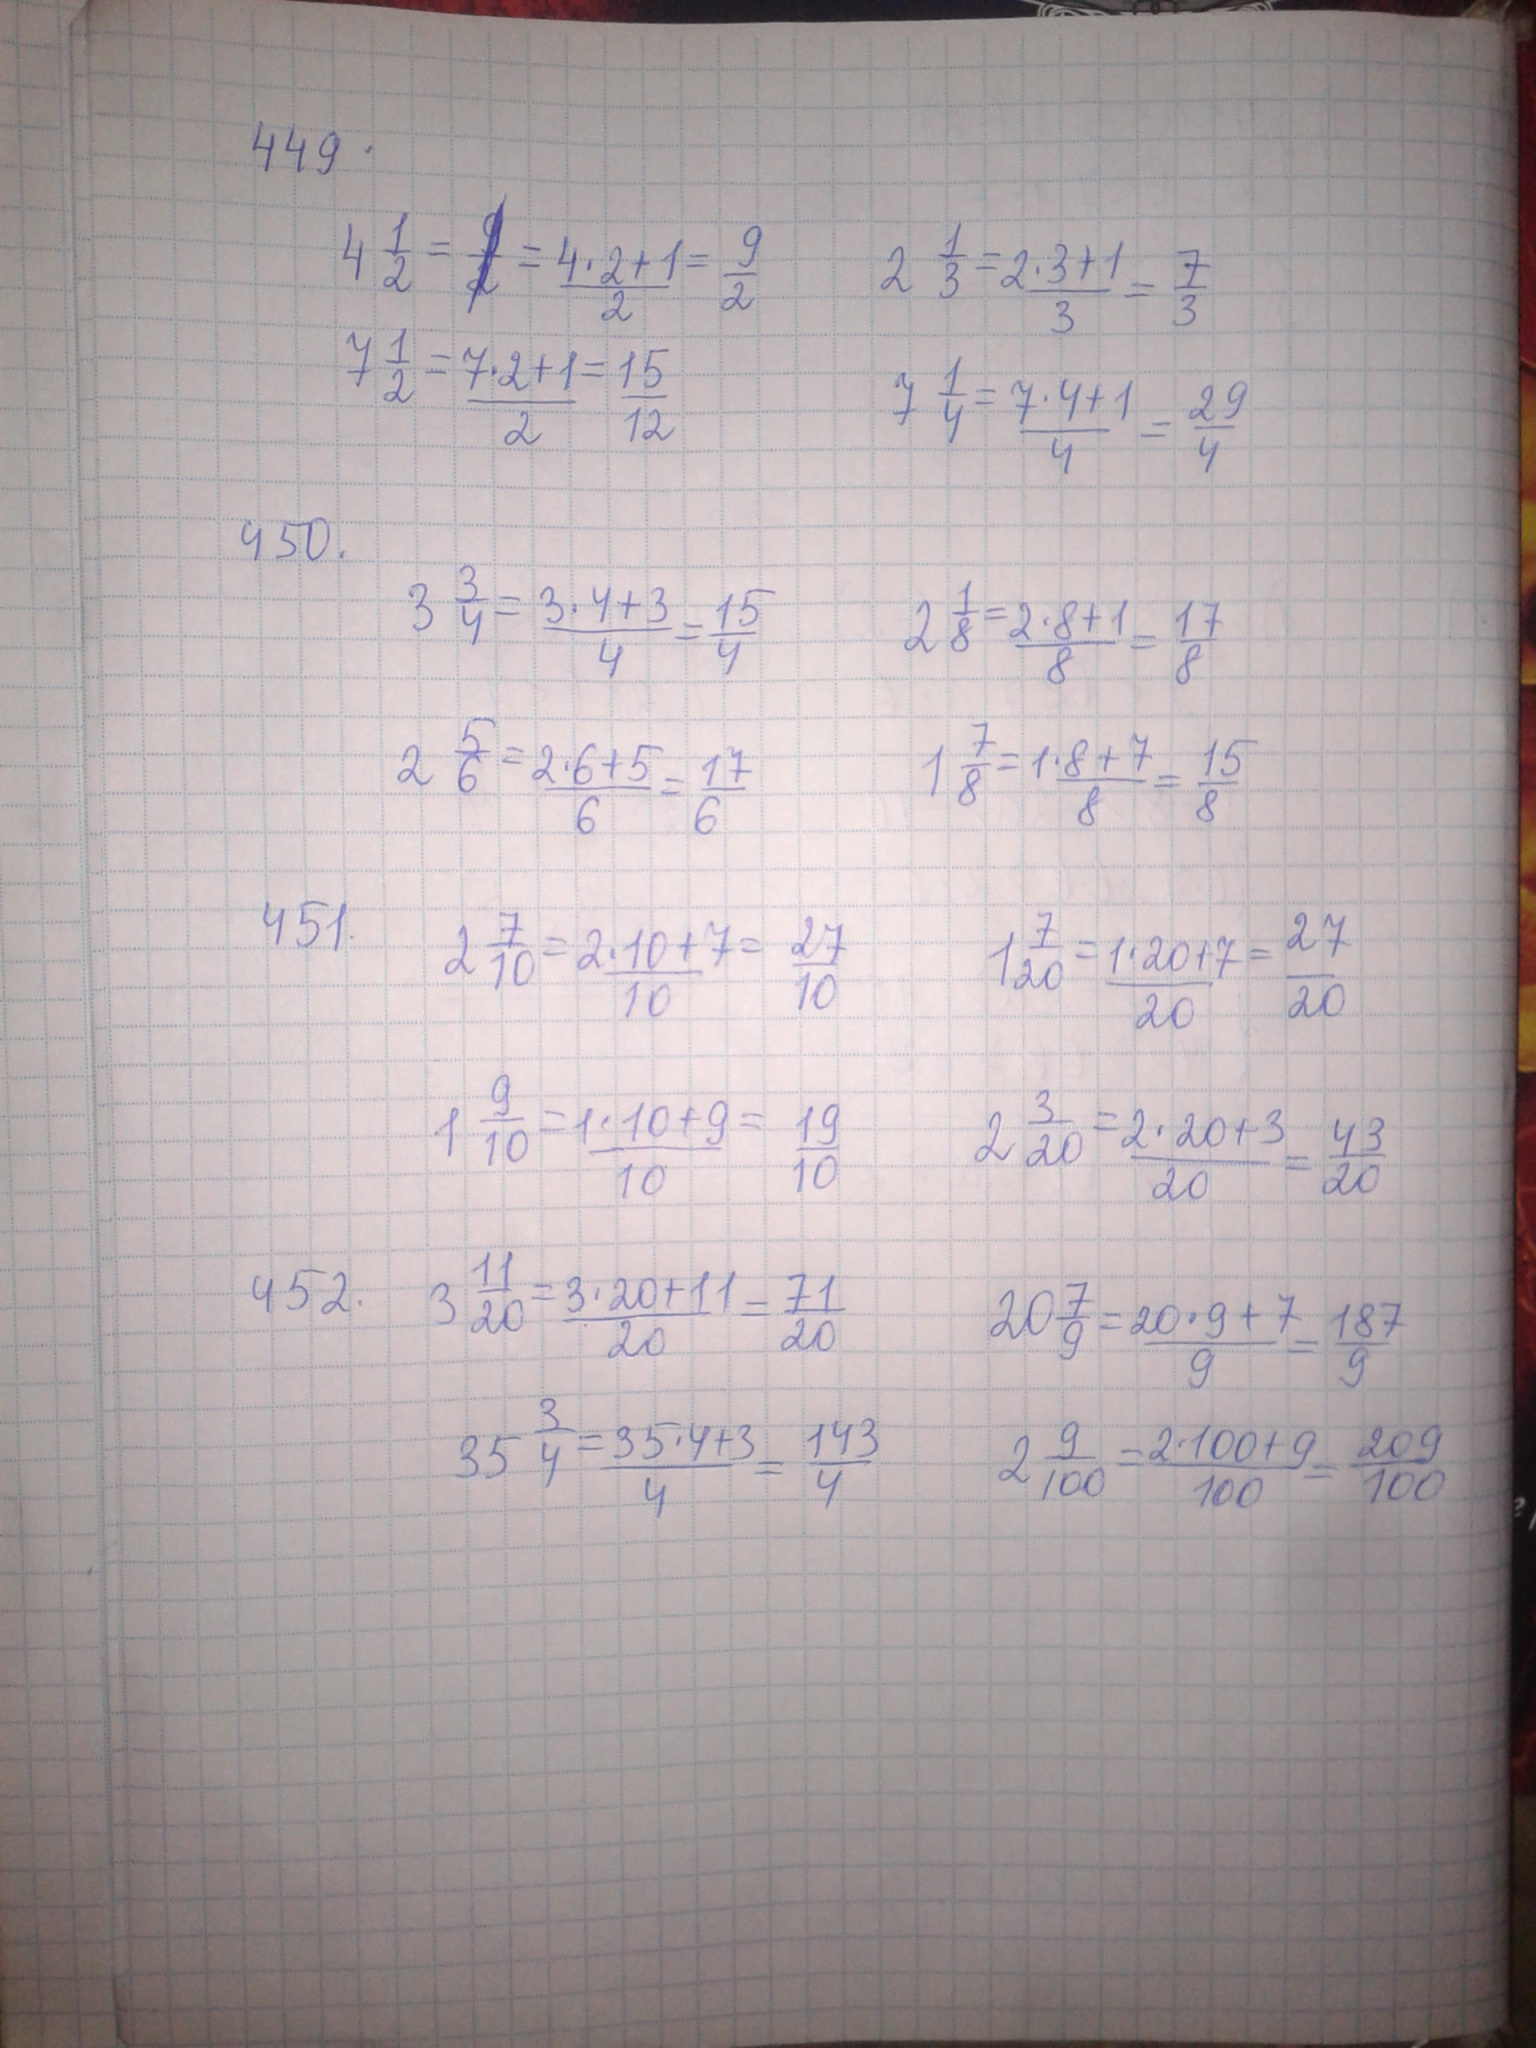 449.
4 1/2 = = (4·2+1)/2 = 9/2   2 1/3 = (2·3+1)/3 = 7/3
7 1/2 = (7·2+1)/2 = 15/12   7 1/4 = (7·4+1)/4 = 29/4
450.
3 3/4 = (3·4+3)/4 = 15/4   2 1/8 = (2·8+1)/8 = 17/8
2 5/6 = (2·6+5)/6 = 17/6   1 7/8 = (1·8+7)/8 = 15/8
451. 2 7/10 = (2·10+7)/10 = 27/10   1 7/20 = (1·20+7)/20 = 27/20
1 9/10 = (1·10+9)/10 = 19/10   2 3/20 = (2·20+3)/20 = 43/20
452. 3 11/20 = (3·20+11)/20 = 71/20   20 7/9 = (20·9+7)/9 = 187/9
35 3/4 = (35·4+3)/4 = 143/4   2 9/100 = (2·100+9)/100 = 209/100